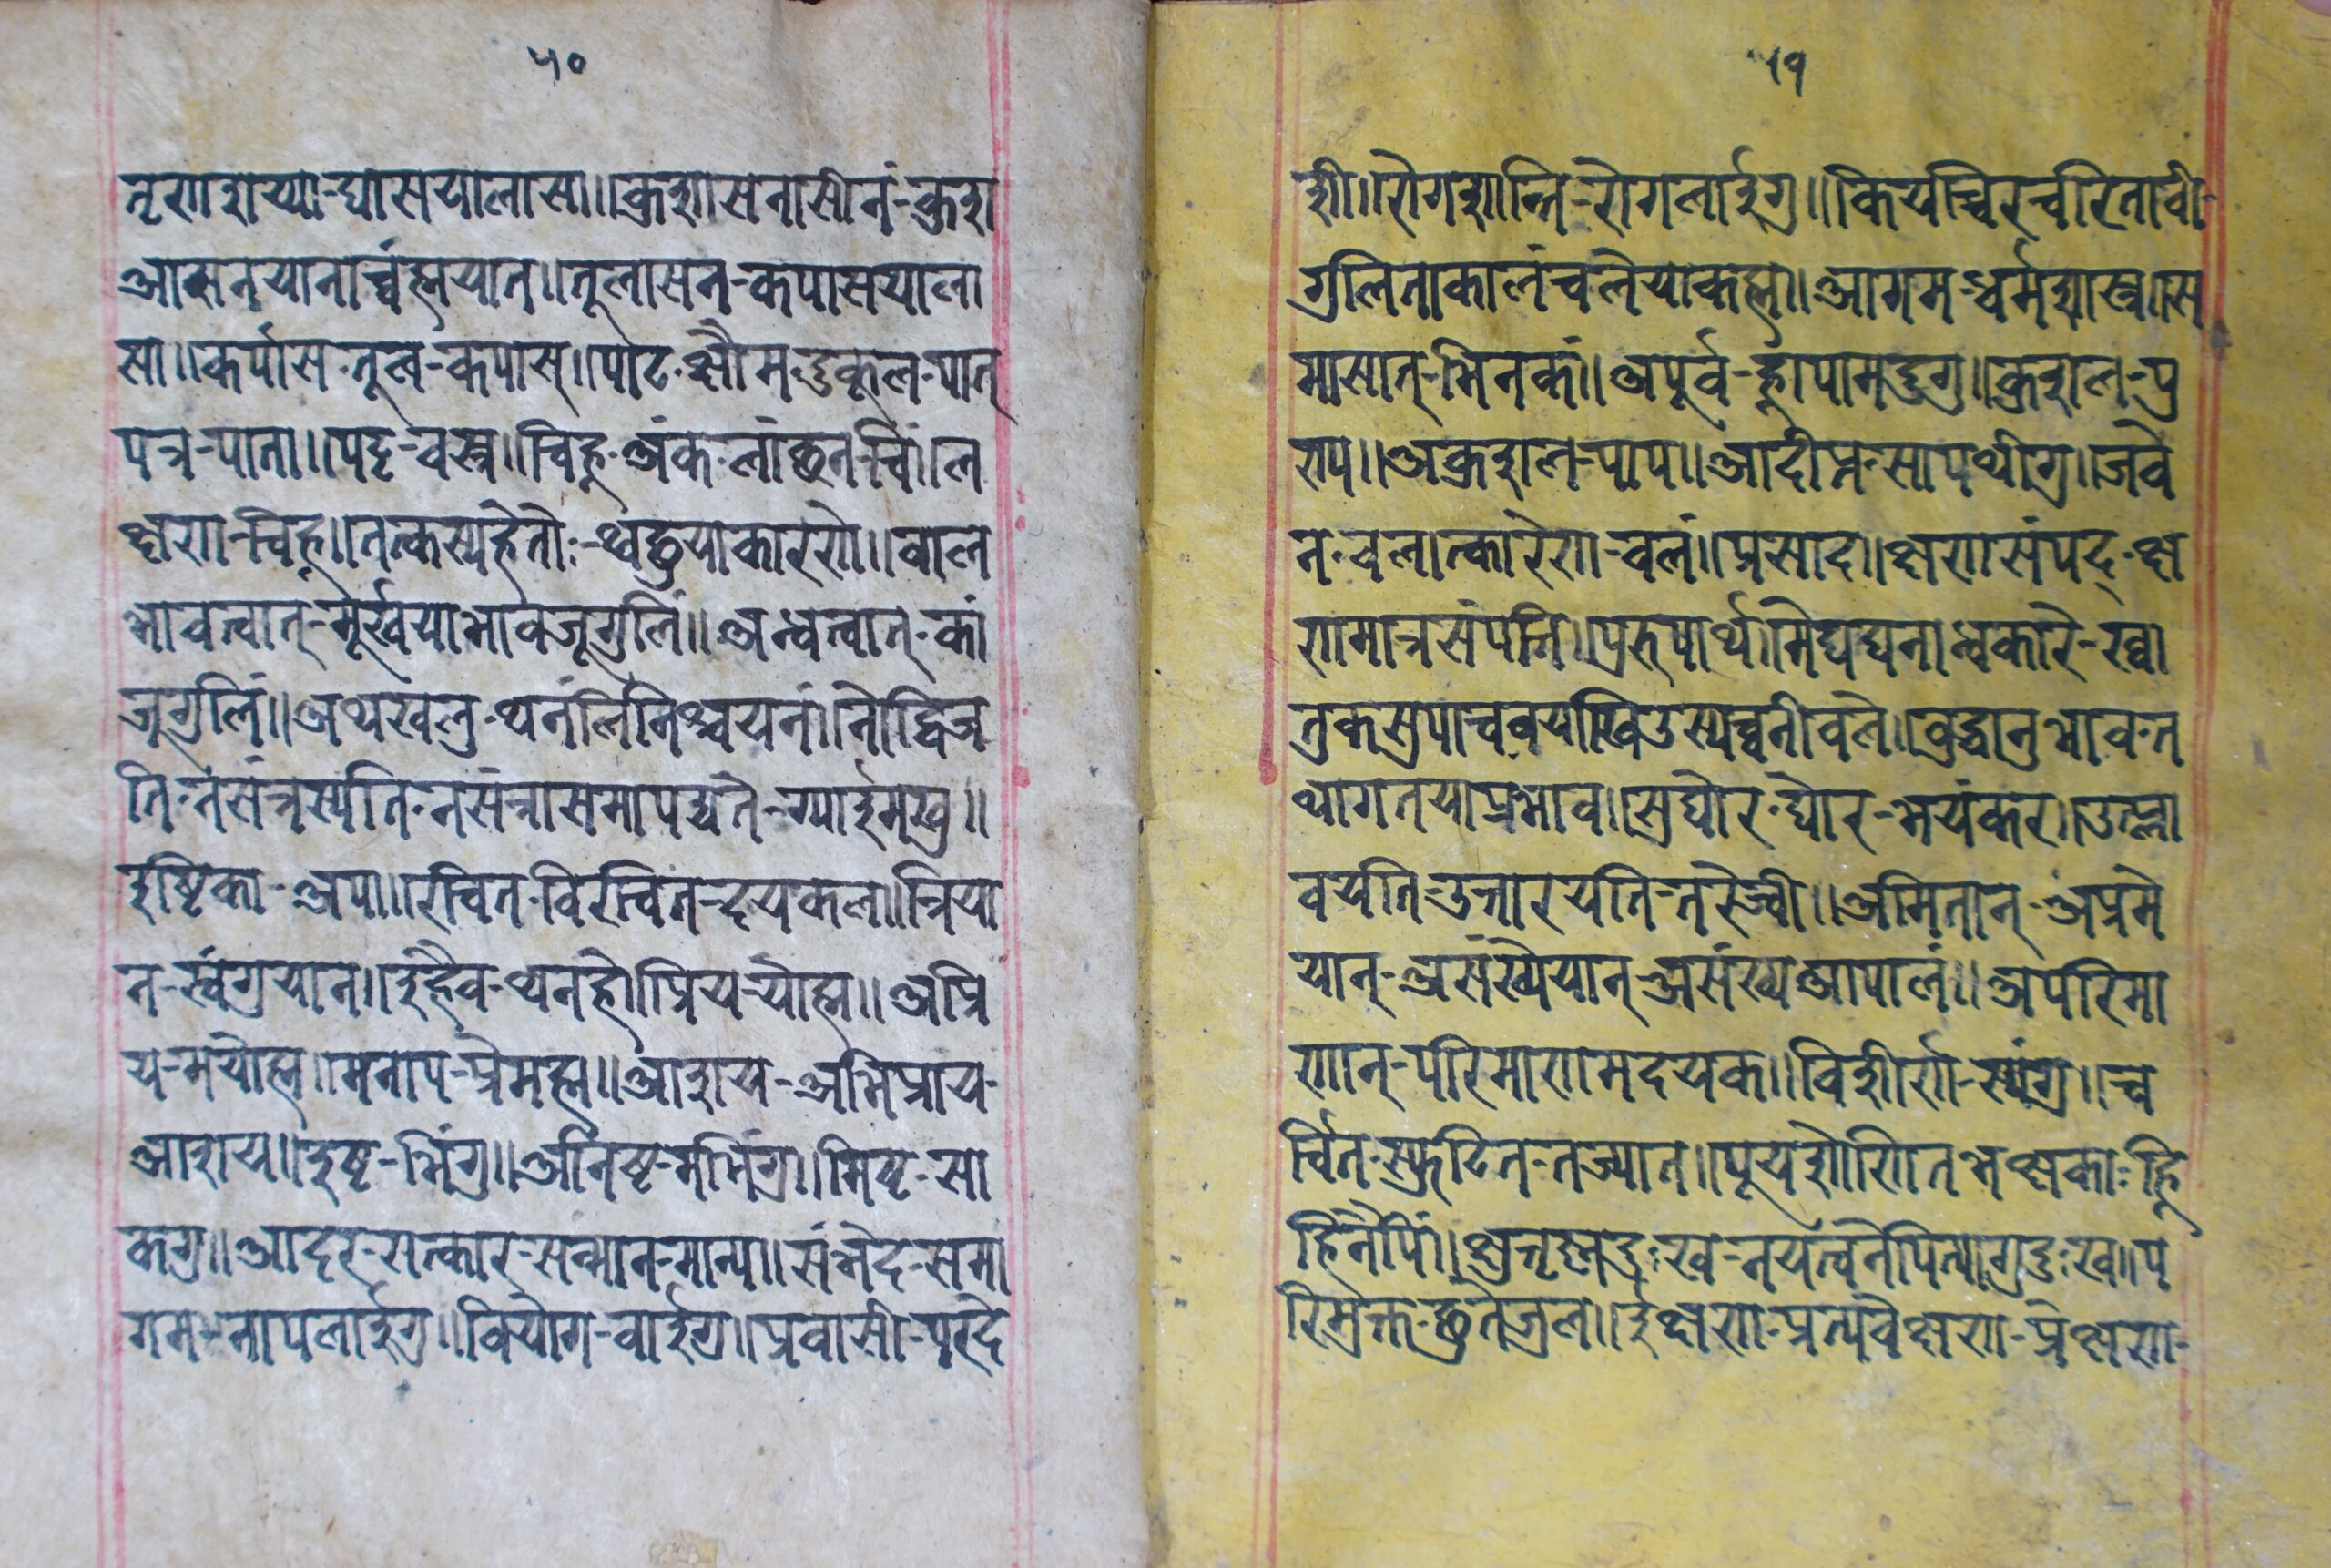 ५०
तृणशय्या-घासयालासा॥कुशासनासीनं-कुश
आसनयानाच्वंह्मयात॥तूलासन-कपासयाला
सा॥कर्पास-तूल-कपास्॥पाट-क्षौम-दुकूल-पात्
पत्र-पाता॥पट्ट-वस्त्र॥चिह्न-अंक-लांछन-चिं॥ल
क्षण-चिह्न॥तत्कस्यहेतोः-थ्वछुयाकारणे॥बाल
भावत्वात्-मूर्खयाभावजूगुलिं॥अन्धत्वात्-कां
जूगुलिं॥अथखलु-थनंलिनिश्चयनं॥नोद्विज
ति-नसंत्रस्यति-नसंत्रासमापद्यते-ग्यार्इमखु॥
इष्टिका-अपा॥रचित-विरचित-दयकल॥त्रिया
न-स्वंगुयान॥इहैव-थ्यनहे॥प्रिय-योह्म॥अप्रि
य-मयोह्म॥मनाप-प्रेमह्म॥आशय-अभिप्राय-
आशय॥इष्ट-भिंगु॥अनिष्ट-मभिंगु॥मिष्ट-सा
कगु॥आदर-सत्कार-सन्मान-मान्य॥संभेद-समा
गम-नापलार्इगु॥वियोग-वार्इगु॥प्रवासी-परदे
५१
शी॥रोगशान्ति-रोगलार्इगु॥कियच्चिरचरितावी-
गुलिताकालंचलेयाकह्म॥आगम-धर्मशास्त्र॥स
मासात्-भिनकं॥अपूर्व-ह्नापामदुगु॥कुशल-पु
ण्य॥अकुशल-पाप॥आदीप्त-सापथीगु॥जवे
न-बलात्कारेण-बलं॥प्रसाद॥क्षणसंपद्-क्ष
णमात्रसंपत्ति॥पुरुषार्थ॥मेघघनान्धकारे-ख्वा
तुकसुपाचवयाखिउस्यच्वनीवले॥बुद्धानुभाव-त
थागतयाप्रभाव॥सुघोर-घोर-भयंकर॥उत्प्ला
वयति-उत्तारयति-तरेज्वी॥अमितान्-अप्रमे
यान्-असंख्येयान्-असंख्यआपालं॥अपरिमा
णान्-परिमाणमदयक॥विशीर्ण-स्यंगु॥च
र्चित-स्फुटित-तज्यात॥पूयशोणितभक्षका-ह्नि
हिनैपिं॥क्षुत्तृष्णादुःख-नयत्वनेपित्यागुदुःख॥प
रिमुक्त-छुतेजुल॥ईक्षण-प्रत्यवेक्षण-प्रेक्षण-